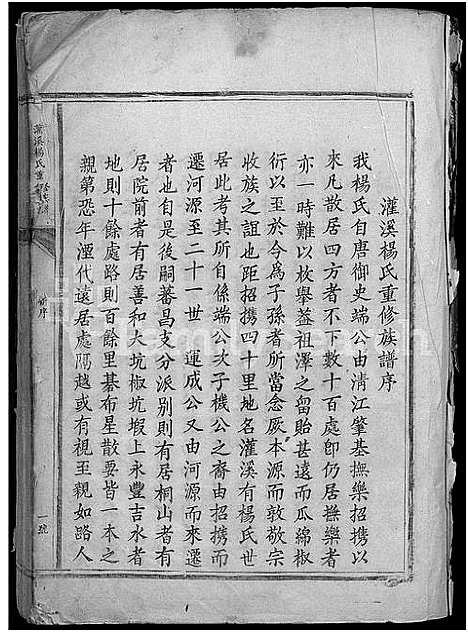 灌溪楊氏重修族譜序
我楊氏自唐御史端公由清江肇基撫樂招携以
來凡散居四方者不下數十百處即仍居撫樂者
亦一時難以枚舉蓋祖澤之留貽甚遠而瓜綿椒
衍以至於今為子孫者所當念厥本源而敦敬宗
收族之誼也距招携四十里地名灌溪有楊氏世
居此考其所自係端公次子機公之裔由招携而
遷河源至二十一世 運成公又由河源而來遷
者也自是後嗣蕃昌支分派别則有居桐山者有
居院前者有居善和大坑椒坑塅上永豐吉水者
地則十餘處路則百餘里棊布星散要皆一本之
親第恐年湮代遠居處隔越或有視至親如路人
灌溪楊氏重
序
一號